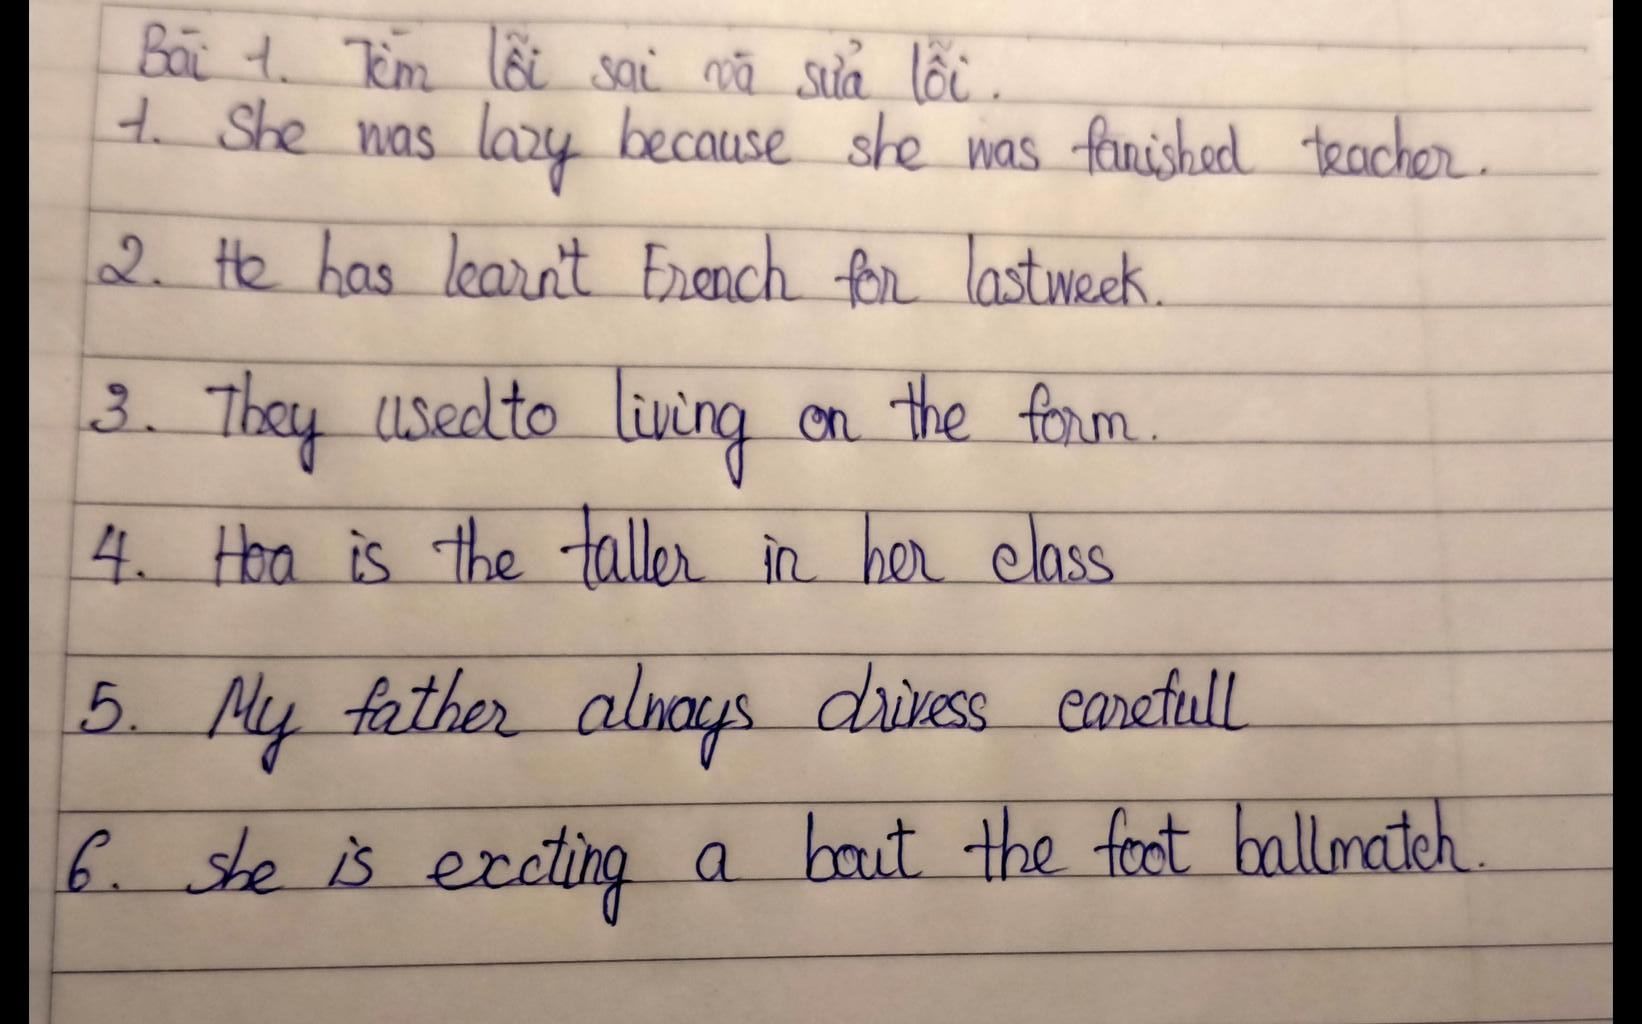 Bài 1. Tìm lỗi sai và sửa lỗi.
1. She was lazy because she was fanished teacher.
2. He has learn't French for lastweek.
3. They usedto living on the form.
4. Hoa is the taller in her class
5. My father always drivess carefull
6. she is excting a bout the foot ballmatch.